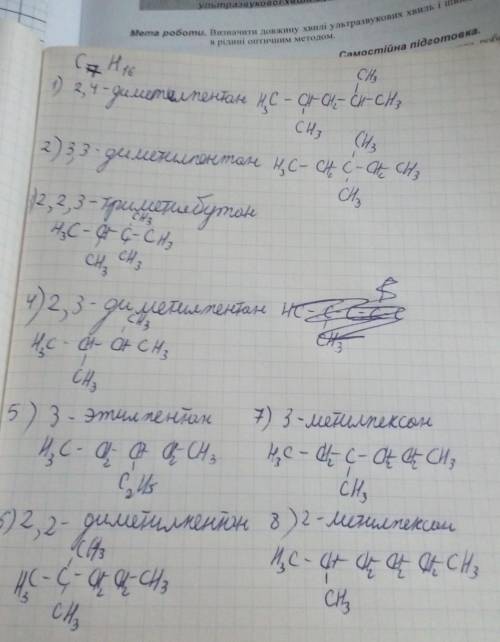 ультразвукової хвилі
Мета роботи. Визначити довжину хвилі ультразвукових хвиль і швид
в рідині оптичним методом.
Самостійна підготовка.
C7H16
1) 2,4-диметилпентан H3C - CH - CH2 - CH - CH3
CH3
CH3
2) 3,3-диметилпентан H3C - CH2 - C - CH2 - CH3
CH3
CH3
) 2,2,3-триметилбутан
CH3
H3C - CH - C - CH3
CH3 CH3
4) 2,3-диметилпентан
CH3
H3C - CH - CH - CH3
CH3
5) 3-этилпентан
H3C - CH2 - CH - CH2 - CH3
C2H5
6) 2,2-диметилпентан
CH3
H3C - C - CH2 - CH2 - CH3
CH3
7) 3-метилгексан
H3C - CH2 - C - CH2 - CH2 - CH3
CH3
8) 2-метилгексан
H3C - CH - CH2 - CH2 - CH2 - CH3
CH3